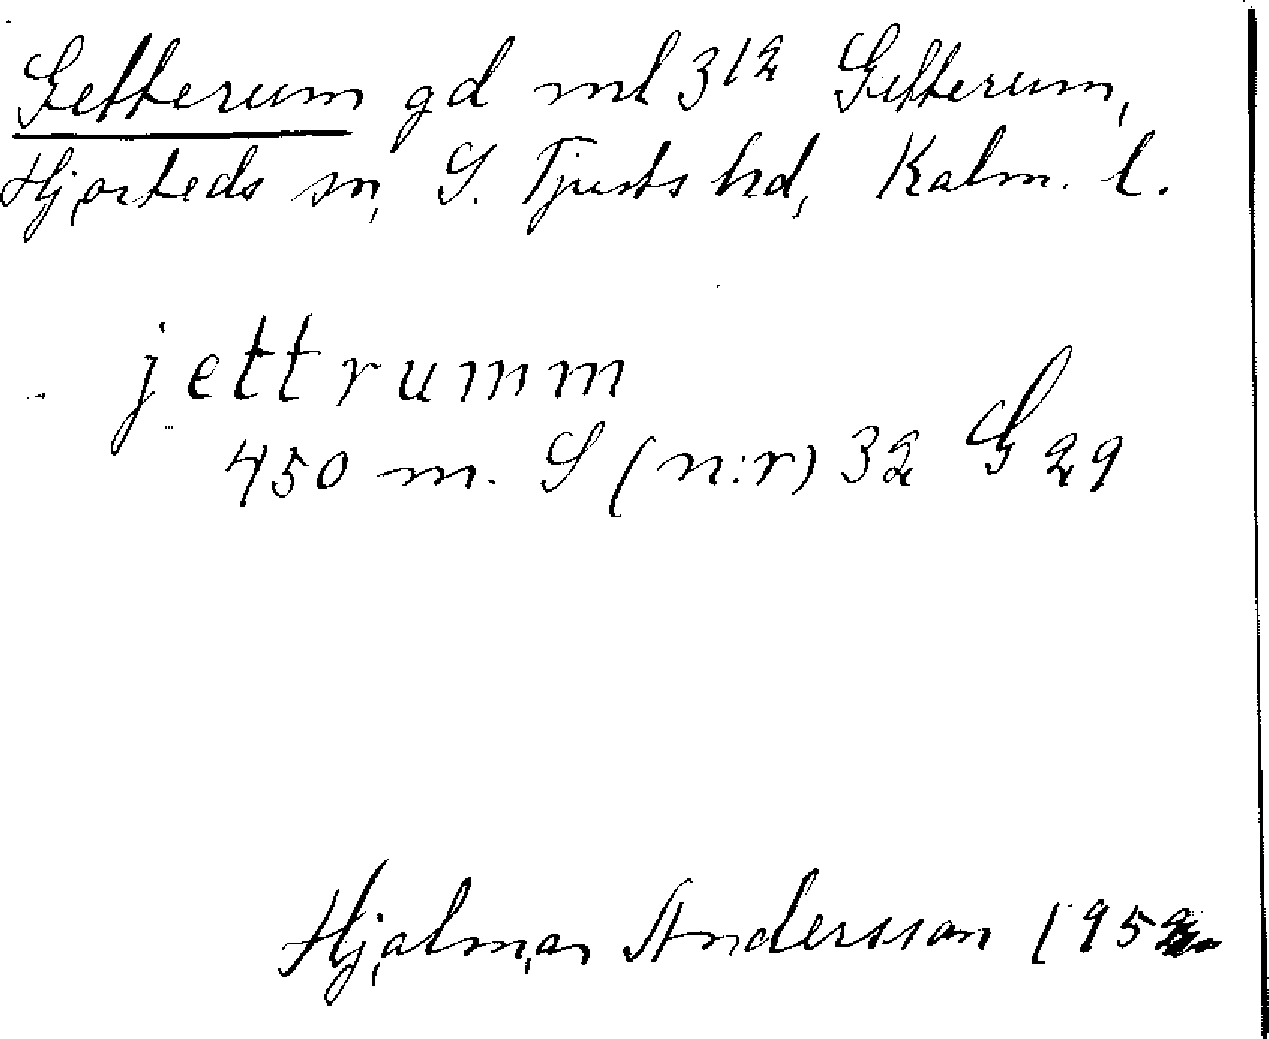 Getterum gd ml 312 Getterum,
Hjorteds sn, S. Tjusts hd, Kalm. l.
jettrumm
450 m. S (n:r) 32 G 29
Hjalmar Andersson 195